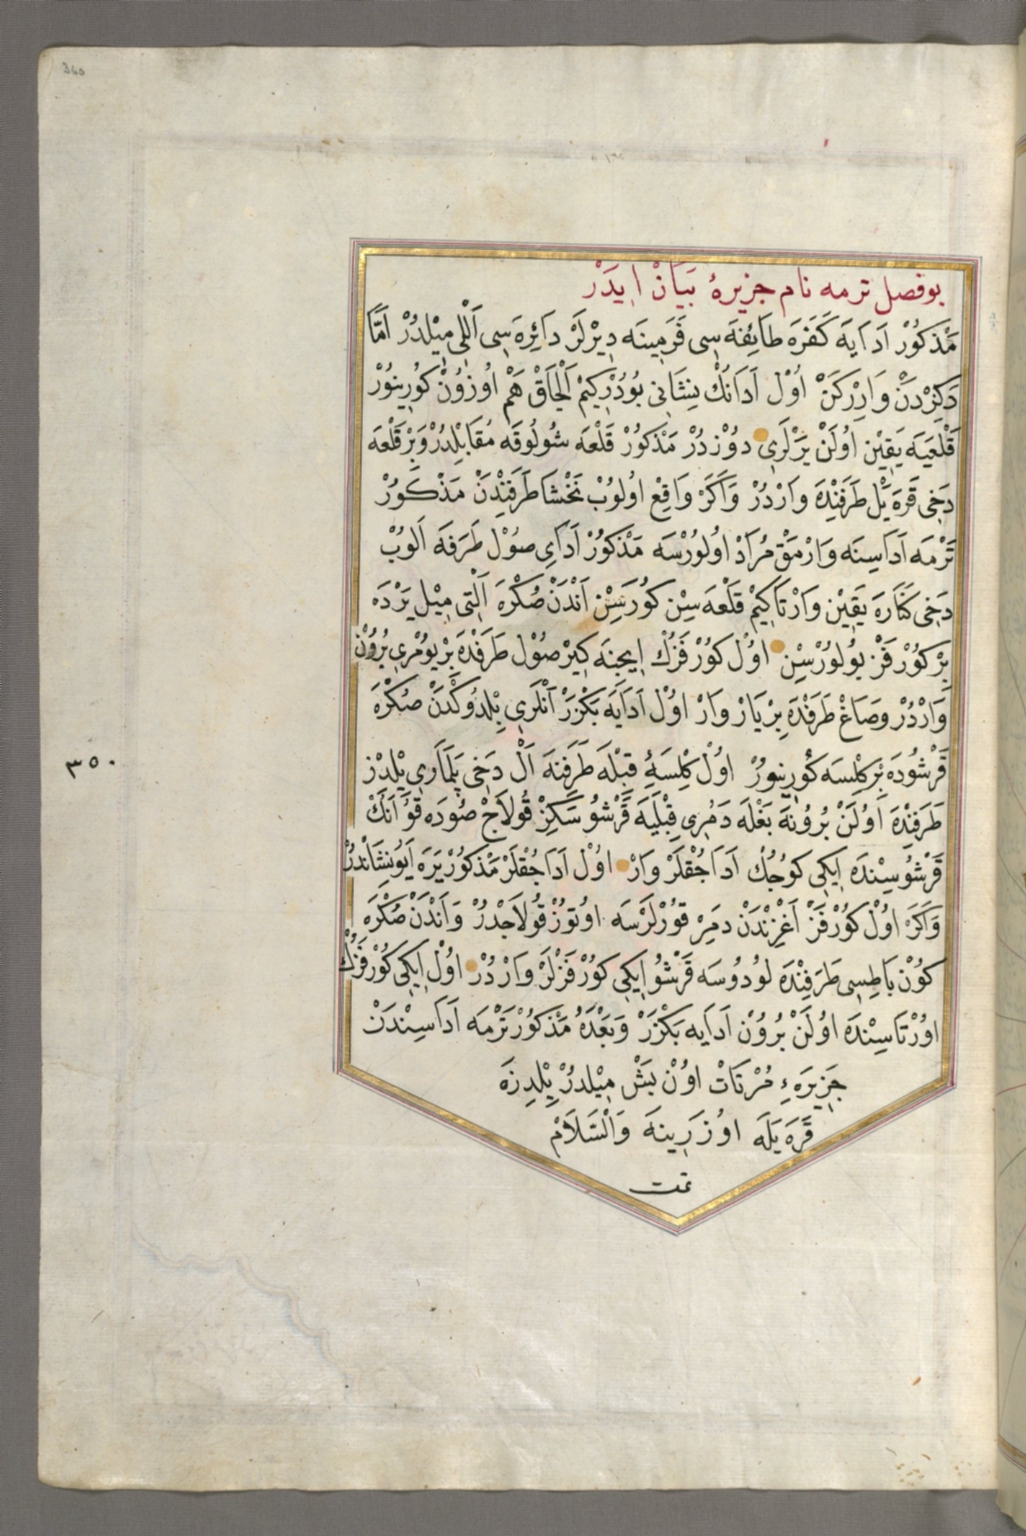 360
بوفصل ترمه نام جزيرۀ بَيَانْ اِيدَرْ
مَذكُورْ اَدَايَه كَفَرَه طَائِفَه سِى فَرَمِينَه دِيْرلَرْ دَائِرَه سِى اَللِّى مِيْلدُرْ اَمَّا
دَكِزدَنْ وَارِركَنْ اُولْ اَدَانُكْ نِشَانِى بُودُرْكِيمْ اَلْجَاقْ هَمْ اُوزُونْ كُورِينُورْ
قَلْعَيَه يَقِيْن اُولَنْ يَرْلَرِى دُوْزدُرْ مَذكُورْ قَلْعَه سُولُوقَه مُقَابِلْدُرْ وَبِرْ قَلْعَه
دَخِى قَرَه يَلْ طَرَفِنْدَه وَارْدُرْ وَاَكَرْ وَاقِعْ اُولُوبْ نَخْشَا طَرَفِنْدَنْ مَذْكُورْ
تَرْمَه اَدَاسِنَه وَارْمَقْ مُرَادْ اُولُورْسَه مَذكُورْ اَدَاىِ صُولْ طَرَفَه اَلُوبْ
دَخِى كَنَارَه يَقِيْن وَارْتَاكِيمْ قَلْعَه سِيْن كُورَسِنْ اَنْدَنْ صُكْرَه اَلْتِى مِيْل يَرْدَه
بِرْ كُورْفَزْ بُولُورْسِنْ اُولْ كُورْفَزُكْ اِيچِنَه كِيرْ صُولْ طَرَفِنْدَه بِرْ يُومْرِى بُرُونْ
وَارْدُرْ وَصَاغْ طَرَفِنْدَه بِرْيَارْ وَارْ اُولْ اَدَايَه بَكْزَرْ اَنْلَرِى بِلْدُوكْدَنْ صُكْرَه
قَرْشُودَه بِرْ كِلِسَه كُورِينُورْ اُولْ كِلِسَهُ قِبْلَه طَرَفِنَه اَلْ دَخِى پَلَمَارِى يِلْدِزْ
طَرَفِنْدَه اُولَنْ بُرُونَه بَغْلَه دَمُرِى قِبْلَيَه قَرْشُو سَكِزْ قُولَاجْ صُودَه قُوَ اَنُكْ
قَرْشُوسِنْدَه اِيكِى كُوجُكْ اَدَاجُقْلَرْ وَارْ اُولْ اَدَاجُقْلَرْ مَذكُورْ يَرَه اَيُونِشَانْدُرْ
وَاَكَرْ اُولْ كُورْفَزْ اَغْزِنْدَنْ دَمِرْ قُورْلَرْسَه اُوتُوزْ قُولَاجْدُرْ وَاَنْدَنْ صُكْرَه
كُونْ بَاطِسِى طَرَفِنْدَه لُودُوسَه قَرْشُو اِيكِى كُورْفَزْلَرْ وَارْدُرْ اُولْ اِيكِى كُورْفَزُكْ
اُورْتَاسِنْدَه اُولَنْ بُرُونْ اَدَايَه بَكْزَرْ وَبَعْدَهُ مَذكُورْ تَرْمَه اَدَاسِنْدَنْ
جَزِيرَهءِ مُرْتَاتْ اُونْ بَشْ مِيْلدُرْ يِلْدِزَه
قَرَه يَلَه اُوزَرِينَه وَالسَّلَامْ
تمت
٣٥٠